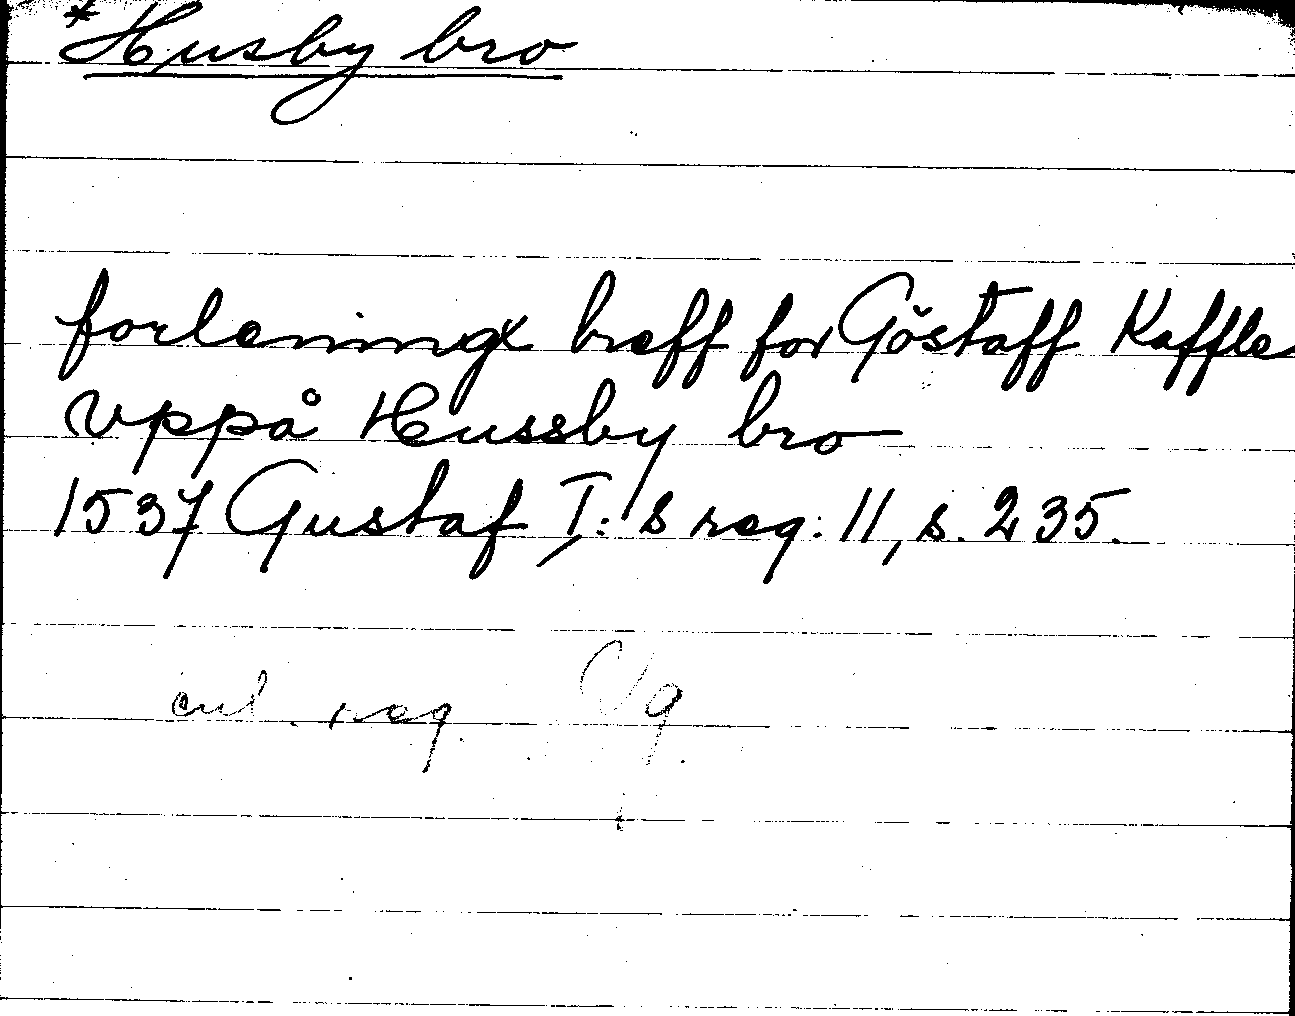 *Husby bro
forleningx breff for Göstaff Kaffle
vppå Hussby bro
1537 Gustaf I:s reg. 11, s. 235.
enl. reg. Vg.